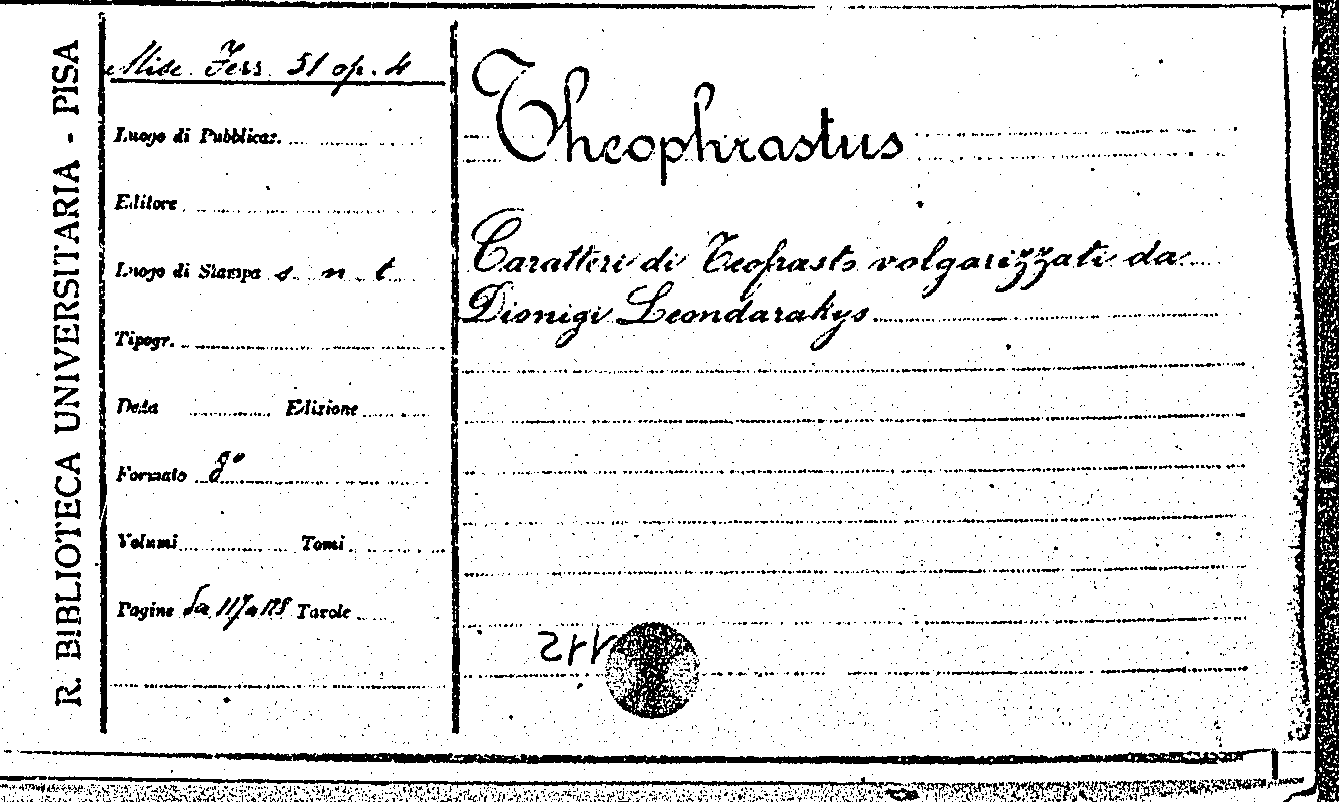 R. BIBLIOTECA UNIVERSITARIA - PISA
Misc. Ferr. 51 op. 4
Luogo di Pubblicaz.
Editore
Luogo di Stampa s. n. t.
Tipogr.
Data Edizione
Formato 8°
Volumi Tomi
Pagine da 117 a 128 Tavole
Theophrastus
Caratteri di Teofrasto volgarizzati da
Dionigi Leondarakys